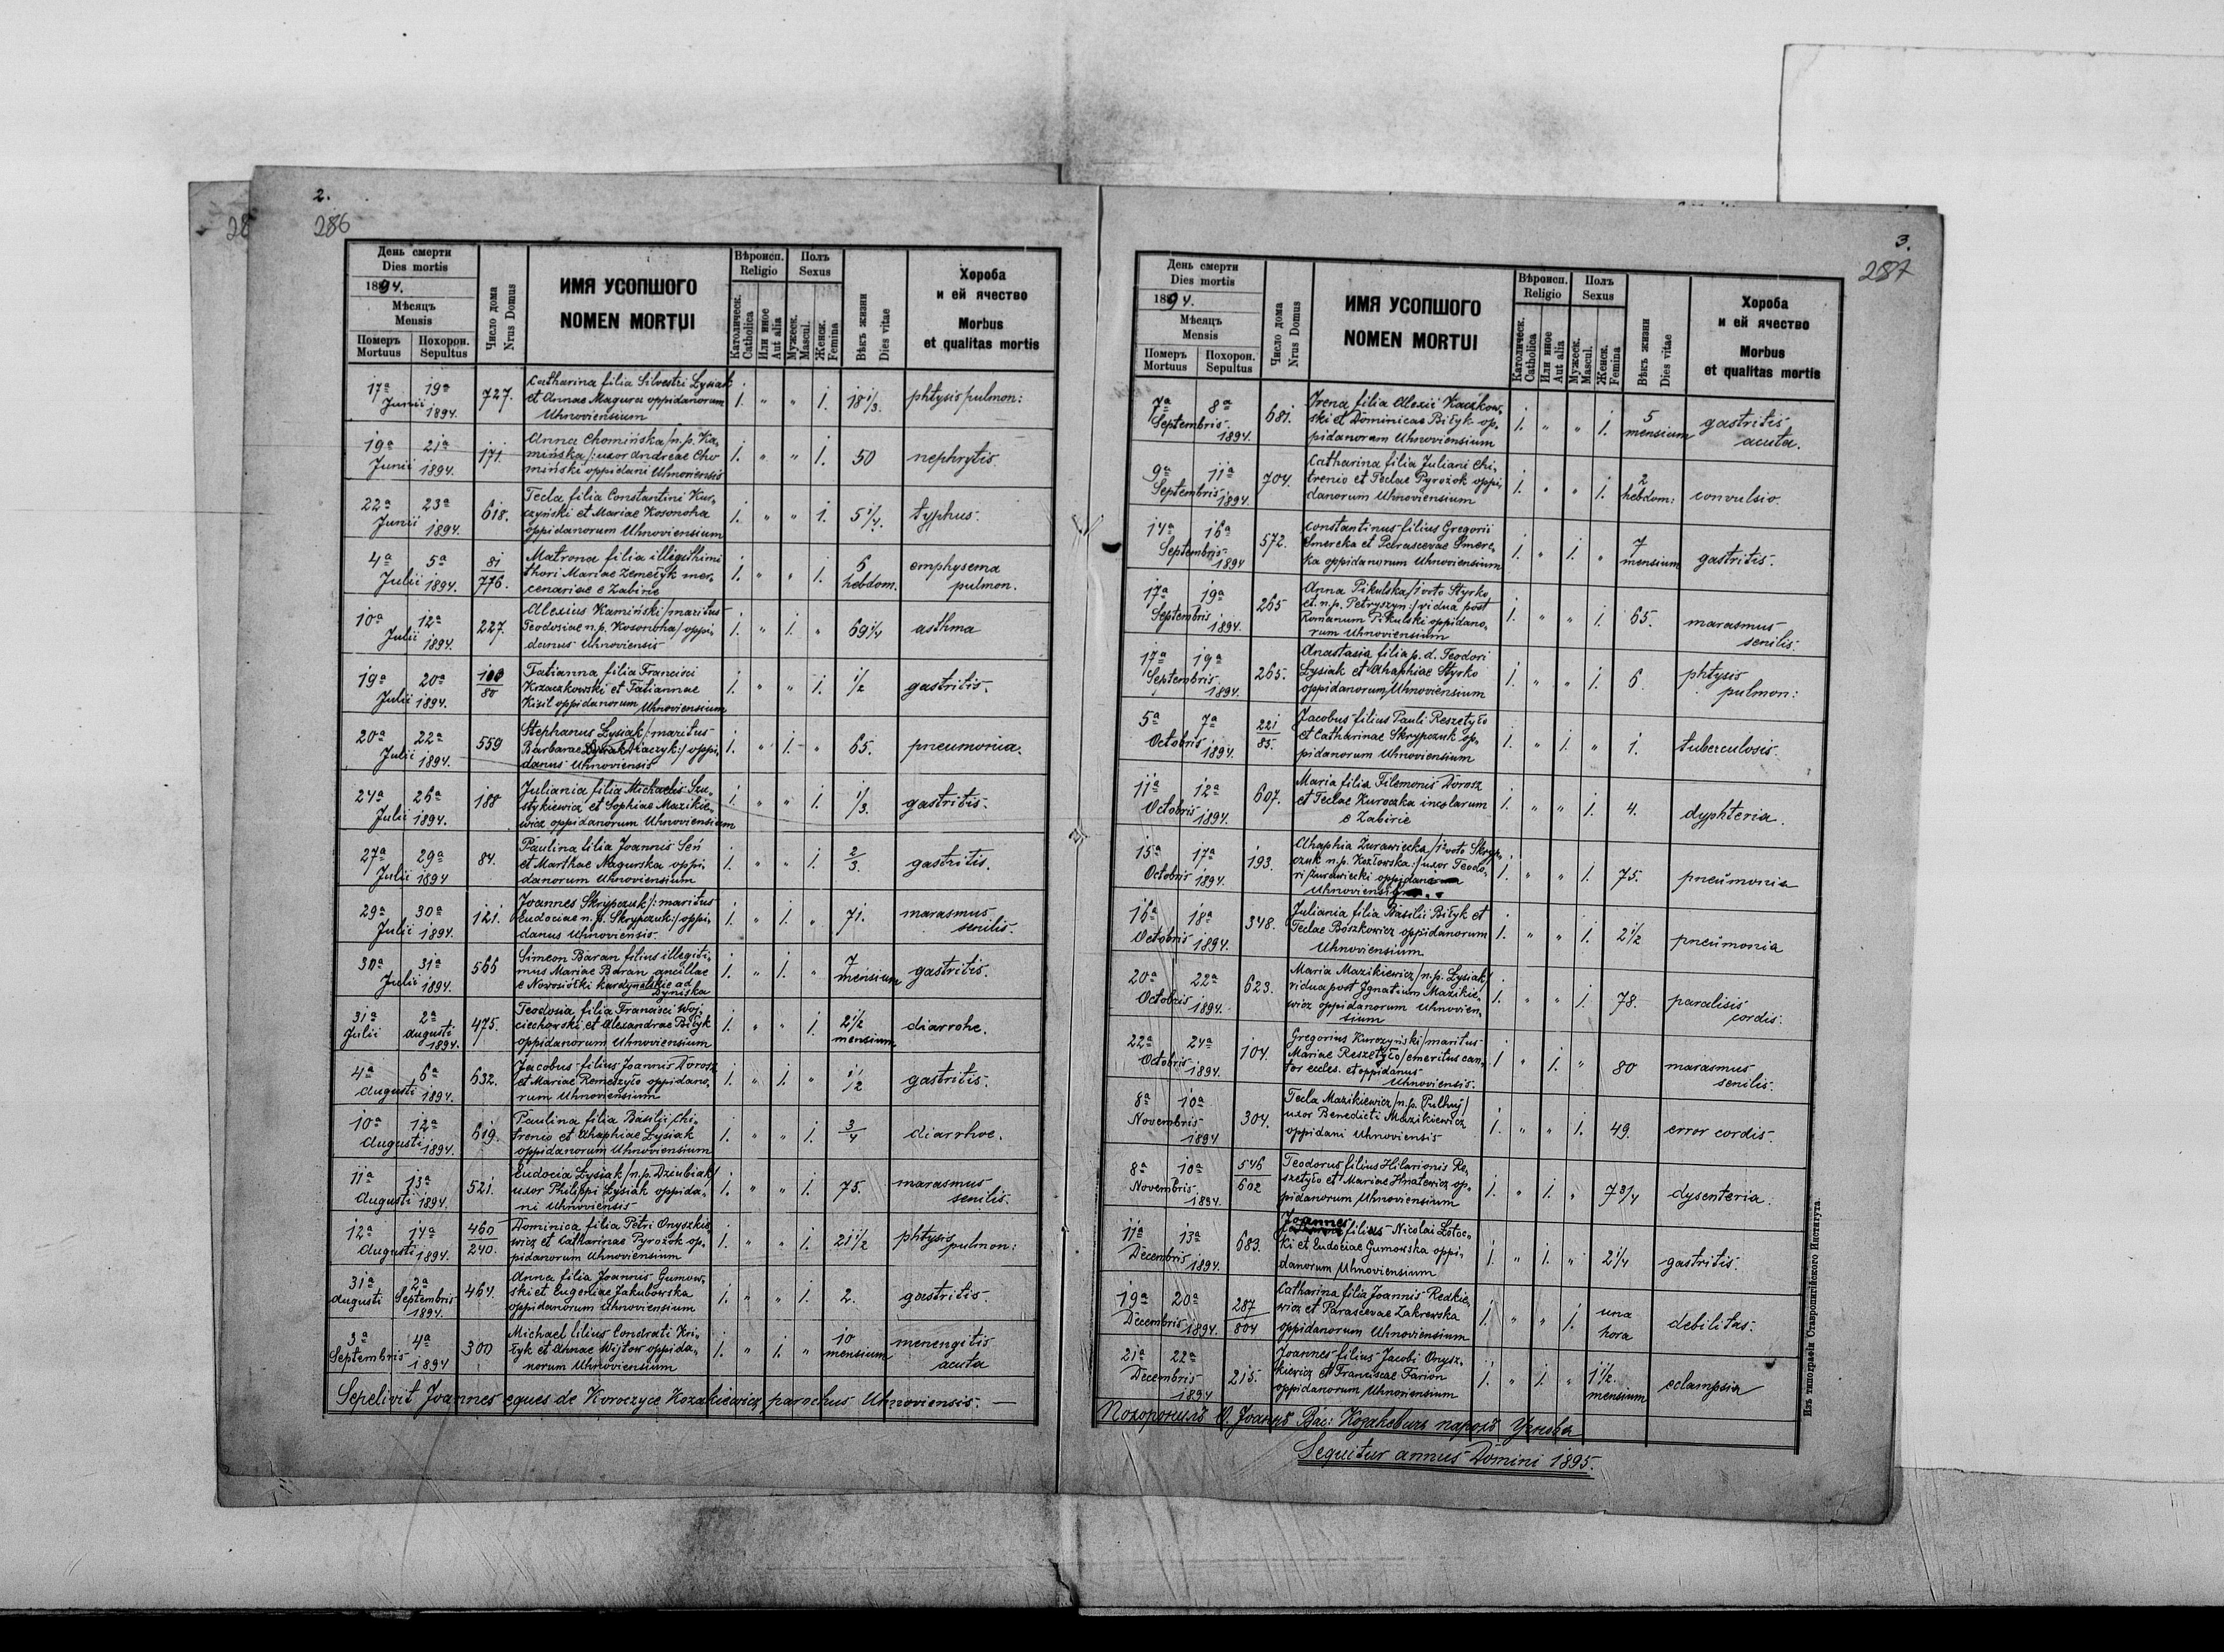 2.
286
День смерти
Dies mortis
1894.
Мѣсяцъ
Mensis
Померъ
Mortuus
Похорон.
Sepultus
Число дома
Nrus Domus
ИМЯ УСОПШОГО
NOMEN MORTUI
Вѣроисп.
Religio
Католическ.
Catholica
Или иное
Aut alia
Полъ
Sexus
Мужеск.
Mascul.
Женск.
Femina
Вѣкъ жизни
Dies vitae
Хороба
и ей ячество
Morbus
et qualitas mortis
17ª 19ª Junii 1894. 727. Catharina filia Silvestri Lysiak
et Annae Magura oppidanorum
Uhnoviensium 1. " " 1. 18 1/3. phtysis pulmon:
19ª 21ª Junii 1894. 171. Anna Chomińska /n.p. Ka-
mińska/: uxor Andreae Cho
miński oppidani Uhnoviensis 1. " " 1. 50 nephrytis.
22ª 23ª Junii 1894. 618. Tecla filia Constantini Kur-
czyński et Mariae Kosonoha
oppidanorum Uhnoviensium 1. " " 1. 5 1/4. typhus.
4ª 5ª Julii 1894. 81/776. Matrona filia illegithimi
thori Mariae Zemełyk mer-
cenariae e Zabirie 1. " " 1. 6 hebdom. emphysema
pulmon.
10ª 12ª Julii 1894. 227. Alexius Kamiński /maritus
Teodosiae n.p. Kosonoha/ oppi-
danus Uhnoviensis 1. " 1. " 69 1/4 asthma
19ª 20ª Julii 1894. 80 Tatianna filia Francisci
Krzaczkowski et Tatiannae
Kizil oppidanorum Uhnoviensium 1. " " 1. 1/2 gastritis.
20ª 22ª Julii 1894. 559 Stephanus Lysiak /:maritus
Barbarae oppi-
danus Uhnoviensis 1. " 1. " 65. pneumonia.
24ª 26ª Julii 1894. 188 Juliania filia Michaelis Szu-
stykiewicz et Sophiae Mazikie-
wicz oppidanorum Uhnoviensium 1. " " 1. 1/3. gastritis.
27ª 29ª Julii 1894 84. Paulina filia Joannis Seń
et Marthae Nagurska oppi-
danorum Uhnoviensium 1. " " 1. 2/3. gastritis.
29ª 30ª Julii 1894. 121. Joannes Skrypczuk /:maritus
Eudociae n.p. Skrypczuk:/ oppi-
danus Uhnoviensis. 1. " 1. " 71. marasmus
senilis.
30ª 31ª Julii 1894. 566 Simeon Baran filius illegiti-
mus Mariae Baran ancillae
e Nowosiółki kardynalskie ad
Dyniska 1. " 1. " 7 mensium gastritis.
31ª Julii 2ª Augusti 1894. 475. Teodosia filia Francisci Woj-
ciechowski et Alexandrae Biłyk
oppidanorum Uhnoviensium 1. " " 1. 2 1/2 mensium. diarrohe.
4ª 6ª Augusti 1894. 632. Jacobus filius Joannis Dorosz
et Mariae Remeszyło oppidano-
rum Uhnoviensium 1. " 1. " 1/2 gastritis.
10ª 12ª Augusti 1894. 619. Paulina filia Basilii Chi-
trenio et Ahaphiae Lysiak
oppidanorum Uhnoviensium 1. " " 1. 3/4 diarrhoe.
11ª 13ª Augusti 1894. 521. Eudocia Lysiak /n.p. Dziubiak/
uxor Philippi Lysiak oppida-
ni Uhnoviensis 1. " " 1. 75. marasmus
senilis.
12ª 14ª Augusti 1894. 460/240. Dominica filia Petri Onyszkie
wicz et Catharinae Pyrożok op-
pidanorum Uhnoviensium 1. " " 1. 21 1/2 phtysis
pulmon:
31ª Augusti 2ª Septembris 1894. 464. Anna filia Joannis Gumow-
ski et Eugeniae Jakubowska
oppidanorum Uhnoviensium 1. " " 1. 2. gastritis.
3ª 4ª Septembris 1894 300 Michael filius Condrati Kri-
łyk et Annae Wijtow oppida-
norum Uhnoviensium 1. " 1. " 10 mensium menengitis
acuta
Sepelivit Joannes eques de Koroczyce Kozakiewicz parochus Uhnoviensis. —
3.
287
День смерти
Dies mortis
1894.
Мѣсяцъ
Mensis
Померъ
Mortuus
Похорон.
Sepultus
Число дома
Nrus Domus
ИМЯ УСОПШОГО
NOMEN MORTUI
Вѣроисп.
Religio
Католическ.
Catholica
Или иное
Aut alia
Полъ
Sexus
Мужеск.
Mascul.
Женск.
Femina
Вѣкъ жизни
Dies vitae
Хороба
и ей ячество
Morbus
et qualitas mortis
7ª 8ª Septembris 1894. 681. Irena filia Alexii Kaczkow-
ski et Dominicae Biłyk op-
pidanorum Uhnoviensium 1. " " 1. 5 mensium gastritis
acuta.
9ª 11ª Septembris 1894. 704. Catharina filia Juliani Chi-
trenio et Teclae Pyrożok oppi-
danorum Uhnoviensium 1. " " 1. 2 hebdom: convulsio.
14ª 16ª Septembris 1894 572. Constantinus filius Gregorii
Smereka et Parascevae Smere-
ka oppidanorum Uhnoviensium 1. " 1. " 7 mensium gastritis.
17ª 19ª Septembris 1894. 265 Anna Pikulska /1 voto Styrko
et n.p. Petryszyn:/ vidua post
Romanum Pikulski oppidano-
rum Uhnoviensium 1. " " 1. 65. marasmus
senilis.
17ª 19ª Septembris 1894. 265. Anastasia filia p.d. Teodori
Lysiak et Ahaphiae Styrko
oppidanorum Uhnoviensium 1. " " 1. 6. phtysis
pulmon:
5ª 7ª Octobris 1894. 221/85. Jacobus filius Pauli Reszetyło
et Catharinae Skrypczuk op-
pidanorum Uhnoviensium 1. " 1. " 1. tuberculosis.
11ª 12ª Octobris 1894. 607. Maria filia Filemonis Dorosz
et Teclae Kuroczka incolarum
e Zabirie 1. " " 1. 4. dyphteria.
15ª 17ª Octobris 1894. 193. Ahaphia Żurawiecka /1º voto Skryp-
czuk n.p. Kozłowska:/ uxor Teodo-
ri Żurawiecki
1. " " 1. 75. pneumonia
16ª 18ª Octobris 1894. 348. Juliania filia Basilii Biłyk et
Teclae Boszkowicz oppidanorum
Uhnoviensium 1. " " 1. 2 1/2 pneumonia
20ª 22ª Octobris 1894. 623. Maria Mazikiewicz /n.p. Lysiak/
vidua post Ignatium Mazikie-
wicz oppidanorum Uhnovien-
sium 1. " " 1. 78. paralisis
cordis.
22ª 24ª Octobris 1894. 104. Gregorius Kurczyński /maritus
Mariae Reszetyło/ emeritus can-
tor eccles. et oppidanus
Uhnoviensis. 1 " 1. " 80 marasmus
senilis.
8ª 10ª Novembris 1894 304. Tecla Mazikiewicz /n.p. Pulhuj/
uxor Benedicti Mazikiewicz
oppidani Uhnoviensis 1. " " 1. 49. error cordis.
8ª 10ª Novembris 1894. 546/602 Teodorus filius Hilarionis Re-
szetyło et Mariae Hnatewicz op-
pidanorum Uhnoviensium 1. " 1. " 7 3/4 dysenteria.
11ª 13ª Decembris 1894. 683. Joannes
filius Nicolai Łotoc-
ki et Eudociae Gumowska oppi-
danorum Uhnoviensium 1. " 1. " 2 1/4 gastritis.
19ª 20ª Decembris 1894. 287/804 Catharina filia Joannis Redkie-
wicz et Parascevae Zakrewska
oppidanorum Uhnoviensium 1. " " 1. una hora debilitas.
21ª 22ª Decembris 1894 215. Joannes filius Jacobi Onysz-
kiewicz et Franciscae Farion
oppidanorum Uhnoviensium 1. " 1. " 1 1/2. mensium eclampsia
Похоронилъ О. Іоаннъ Вас: Козакевичъ парохъ Угнова
Sequitur annus Domini 1895.
Изъ типографіи Ставропигійского Института